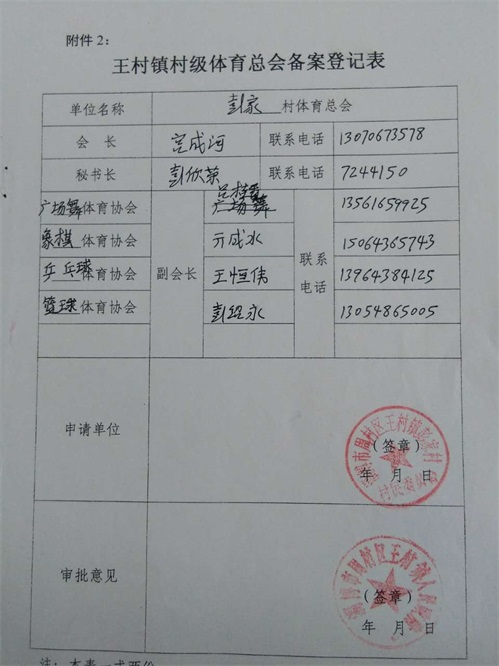 附件2：
王村镇村级体育总会备案登记表
单位名称 彭家 村体育总会
会 长 宫成河 联系电话 13070673578
秘书长 彭欣荣 联系电话 7244150
广场舞体育协会 广场舞 13561659925
象棋体育协会 亓成水 15064365743
乒乓球体育协会 副会长 王恒伟 联系电话 13964384125
篮球体育协会 13054865005
申请单位
（签章）
年 月 日
审批意见
（签章）
年 月 日